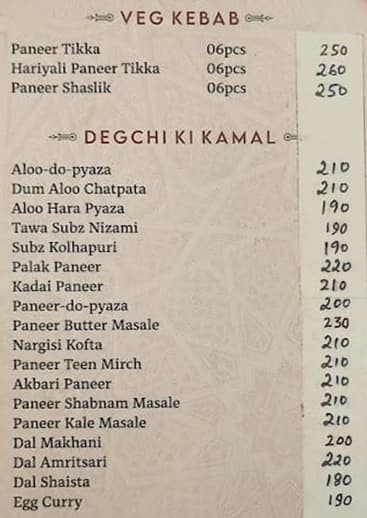 VEG KEBAB
Paneer Tikka 06pcs 250
Hariyali Paneer Tikka 06pcs 260
Paneer Shaslik 06pcs 250
DEGCHI KI KAMAL
Aloo-do-pyaza 210
Dum Aloo Chatpata 210
Aloo Hara Pyaza 190
Tawa Subz Nizami 190
Subz Kolhapuri 190
Palak Paneer 220
Kadai Paneer 210
Paneer-do-pyaza 200
Paneer Butter Masale 230
Nargisi Kofta 210
Paneer Teen Mirch 210
Akbari Paneer 210
Paneer Shabnam Masale 210
Paneer Kale Masale 210
Dal Makhani 200
Dal Amritsari 220
Dal Shaista 180
Egg Curry 190